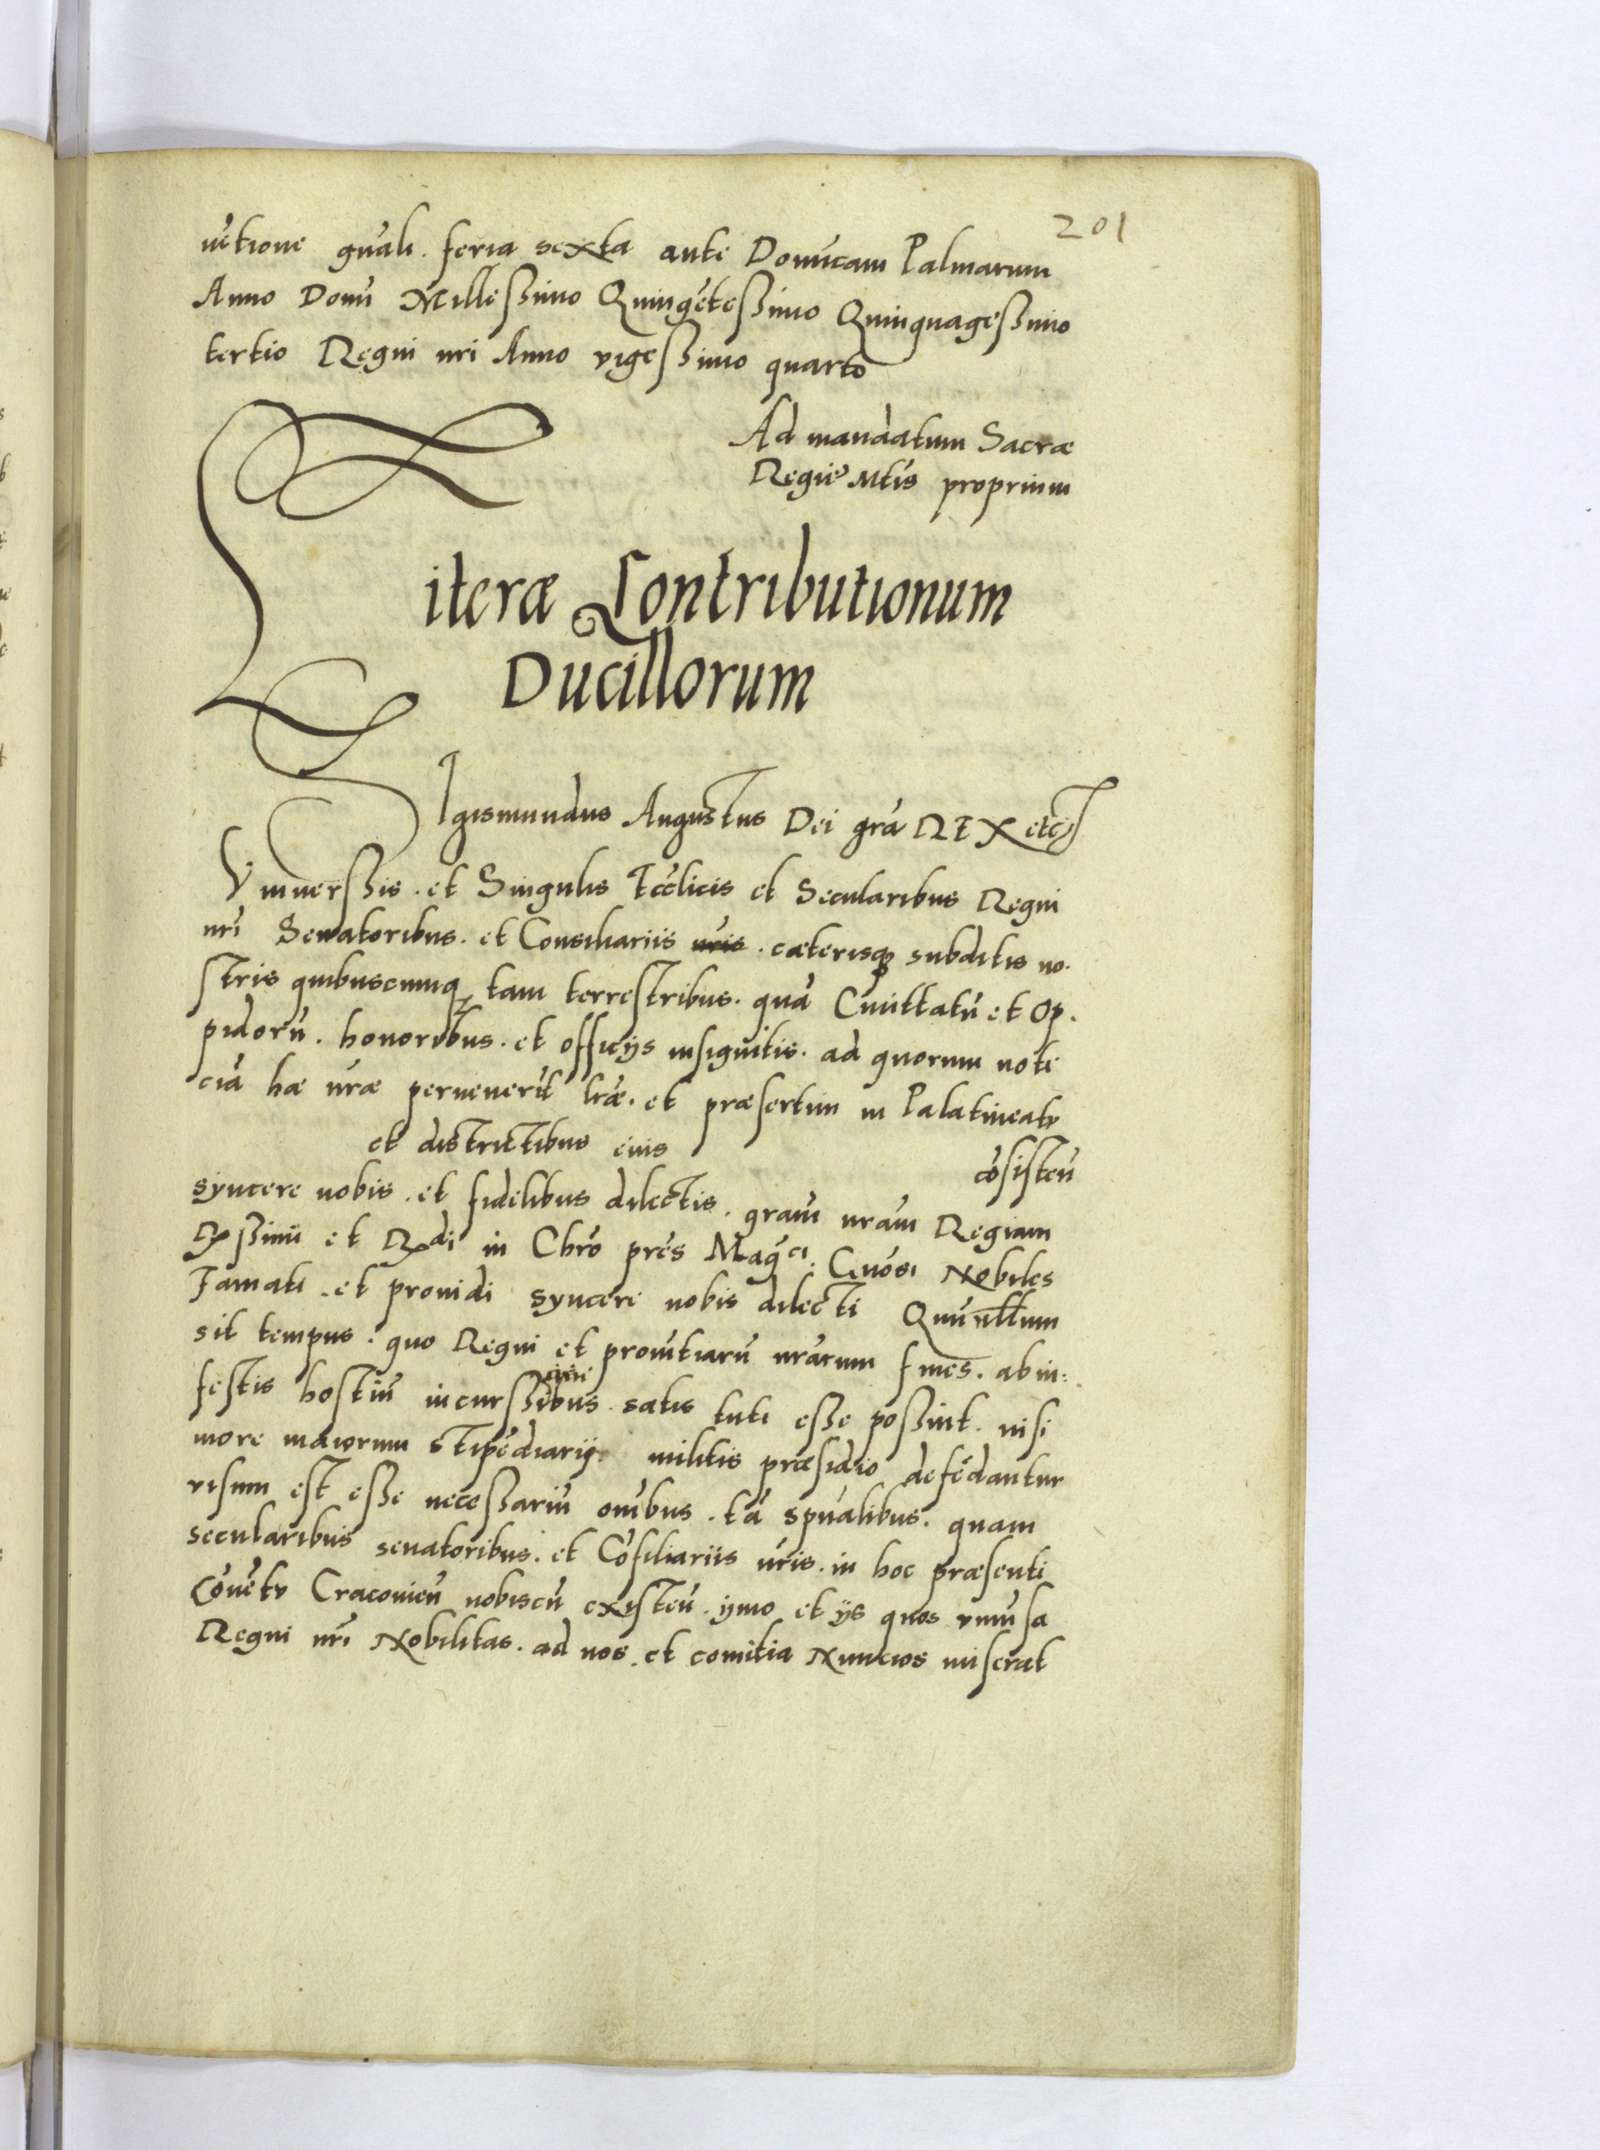 201
vẽtione gñali. feria sexta ante Domĩcam Palmarum
Anno Domĩ Millessimo Quingẽtessimo Quinquagessimo
tertio Regni nrĩ Anno vigessimo quarto
Ad mandatum Sacræ
Regiẽ Mtis proprium
Literæ Contributionum
Ducillorum
SIgismundus Augustus Dei grã REX etc
Vniuerssis. et Singulis Eccĩlicis et Secularibus Regni
nrĩ Senatoribus. et Consiliariis nrĩs. cæterisq subditis no.
stris quibuscunq tam terrestribus. quã Ciuittatũ et Op.
pidorũ. honoribus. et officijs insignitis. ad quorum noti
ciã hæ nrãe peruenerĩt lrãe. et præsertim in Palatineatu
et districtibus eius cõsisteñ
syncere nobis. et fidelibus dilectis. gram nram Regiam
Rssimi et Rdi in Chrõ pres Magci. Gñosi Nobiles
Famati. et prouidi syncere nobis dilecti Quũ nllum
sit tempus. quo Regni et prouĩtiarũ nrãrum fines. ab in:
festis hostiũ incurssibus satis tuti esse possint. nisi
more maiorum stipẽdiarij militis præsidio defẽdantur
visum est esse necessariũ omĩbus. tã spũalibus. quam
secularibus senatoribus. et Cõsiliariis nrĩs. in hoc præsenti
Cõuẽtu Cracouieñ nobiscũ existeñ. ymo et ijs quos vniũsa
Regni nrĩ Nobilitas. ad nos. et comitia Nuncios miserat